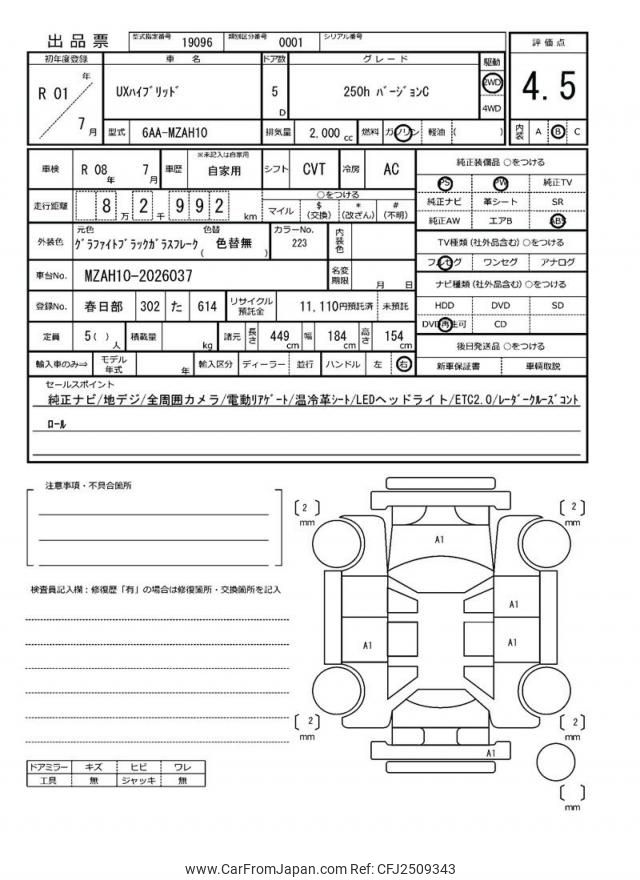 出品票
型式指定番号 19096 類別区分番号 0001 シリアル番号
初年度登録 車名 ドア数 グレード 駆動 評価点
R 01 年 7 月
UXﾊｲﾌﾞﾘｯﾄﾞ
5 D
250h ﾊﾞｰｼﾞｮﾝC
2WD
4WD
4.5
型式 6AA-MZAH10 排気量 2,000 cc 燃料 ガソリン 軽油 ( )
内装 A B C
車検 R 08 年 7 月 車歴 ※未記入は自家用 自家用 シフト CVT 冷房 AC
走行距離 8 万 2 千 9 9 2 km
○をつける
マイル $ (交換) * (改ざん) # (不明)
外装色 元色 ｸﾞﾗﾌｧｲﾄﾌﾞﾗｯｸｶﾞﾗｽﾌﾚｰｸ 色替 ( 色替無 ) カラーNo. 223 内装色
車台No. MZAH10-2026037 名変期限 月 日
登録No. 春日部 302 た 614 リサイクル預託金 11,110円預託済 未預託
定員 5 ( ) 人 積載量 kg 諸元 長さ 449 cm 幅 184 cm 高さ 154 cm
輸入車のみ⇒ モデル年式 年 輸入区分 ディーラー 並行 ハンドル 左 右
純正装備品 ○をつける
PS PW 純正TV
純正ナビ 革シート SR
純正AW エアB ABS
TV種類 (社外品含む) ○をつける
フルセグ ワンセグ アナログ
ナビ種類 (社外品含む) ○をつける
HDD DVD SD
DVD再生可 CD
後日発送品 ○をつける
新車保証書 車輌取説
セールスポイント
純正ナビ/地デジ/全周囲カメラ/電動ﾘｱｹﾞｰﾄ/温冷革ｼｰﾄ/LEDヘッドライト/ETC2.0/ﾚｰﾀﾞｰｸﾙｰｽﾞｺﾝﾄ
ﾛｰﾙ
注意事項・不具合箇所
検査員記入欄：修復歴「有」の場合は修復箇所・交換箇所を記入
ドアミラー キズ ヒビ ワレ
工具 無 ジャッキ 無
[ 2 ] mm
[ 2 ] mm
A1
A1
A1
A1
[ 2 ] mm
[ 2 ] mm
A1
[ ] mm
www.CarFromJapan.com Ref: CFJ2509343